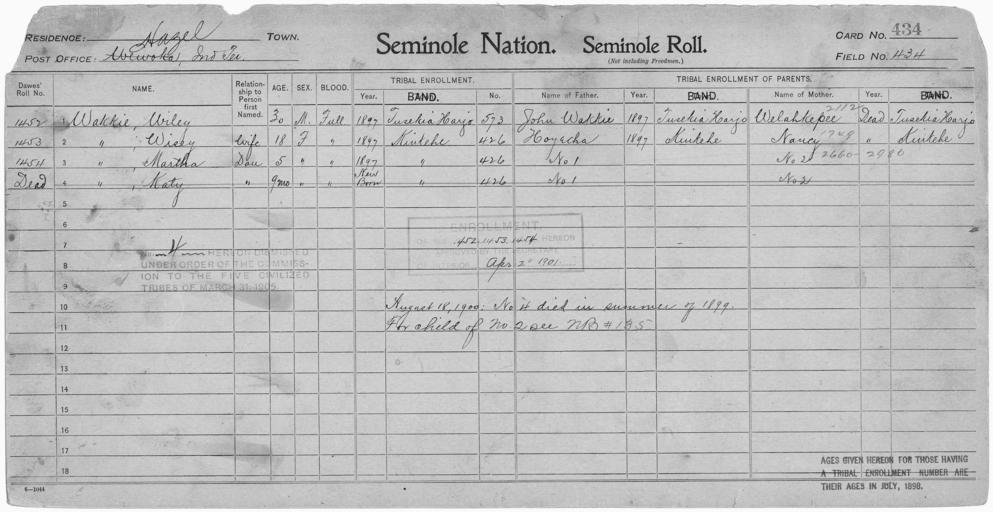 RESIDENCE: Hazel TOWN.
POST OFFICE: Wewoka, Ind Ter.
Seminole Nation. Seminole Roll.
(Not including Freedmen.)
CARD No. 434
FIELD No. 434
Dawes' Roll No. NAME. Relationship to Person first Named. AGE. SEX. BLOOD. TRIBAL ENROLLMENT. Year. BAND. No. TRIBAL ENROLLMENT OF PARENTS. Name of Father. Year. BAND. Name of Mother. Year. BAND.
1452 1 Wakkie, Wiley 30 M. Full 1897 Tusekia Harjo 573 John Wakkie 1897 Tusekia Harjo Welahkepee 2112 Dead Tusekia Harjo
1453 2 " , Wisey Wife 18 F " 1897 Ninkehe 426 Hoyecha 1897 Ninkehe Nancy 1749 " Ninkehe
1454 3 " , Martha Dau 5 " " 1897 " 426 No 1 No 2 2660-2980
Dead 4 " , Katy " 9mo " " New Born " 426 No 1 No 2
5
6
ENROLLMENT
7
1452 1453 1454 HEREON
8
Apr 2" 1901
4 HEREON DISMISSED
UNDER ORDER OF THE COMMISS-
ION TO THE FIVE CIVILIZED
TRIBES OF MARCH 31, 1905.
9
10 August 18, 1900: No 4 died in summer of 1899.
11 For child of No 2 see NB #135
12
13
14
15
16
17
18
AGES GIVEN HEREON FOR THOSE HAVING
A TRIBAL ENROLLMENT NUMBER ARE
THEIR AGES IN JULY, 1898.
6—1044